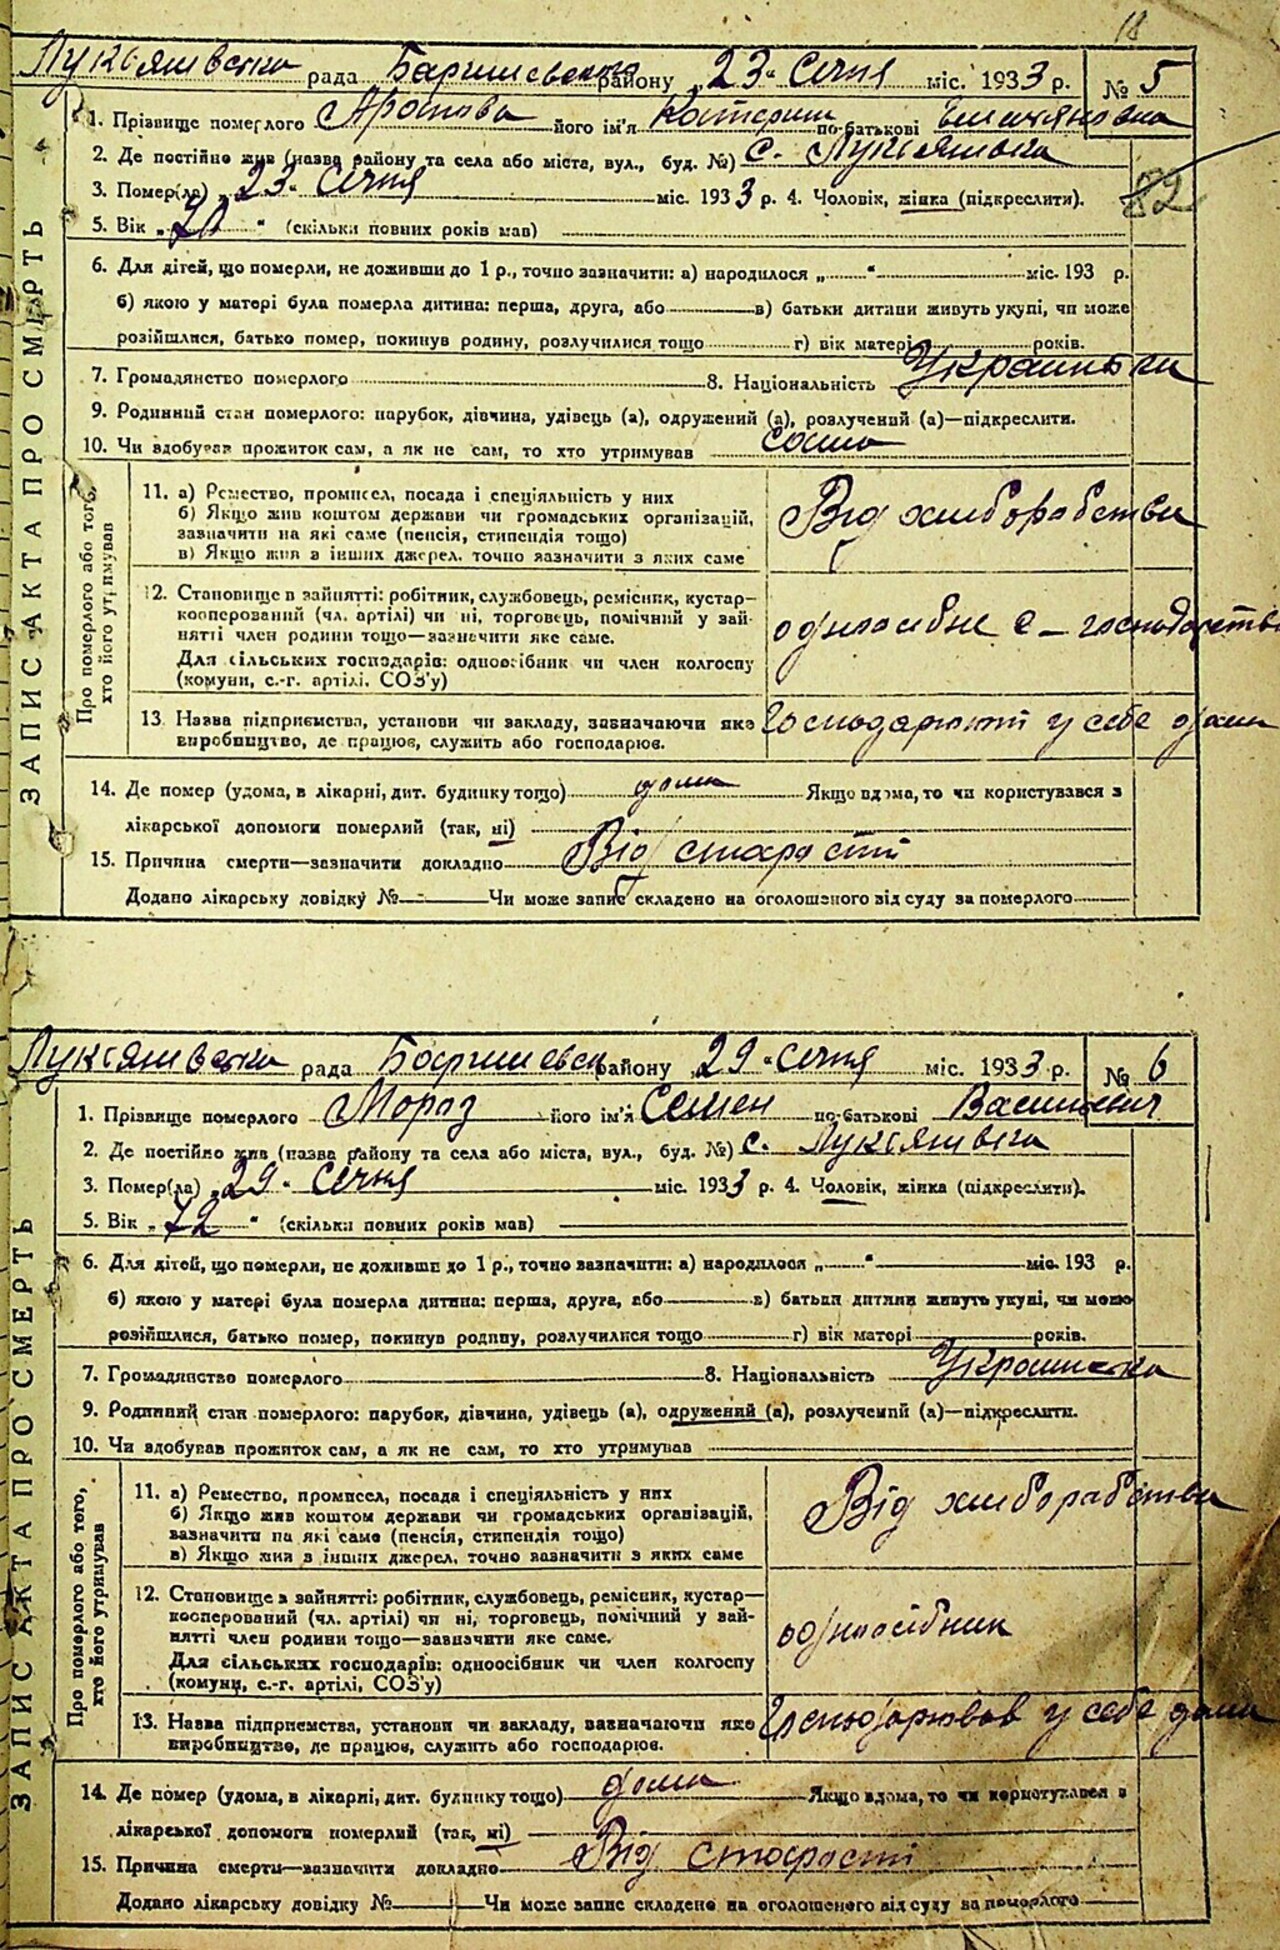 18
Лукьяшвська рада Баришевського району „23“ Січня міс. 1933 р. № 5
1. Прізвище померлого його ім'я Катерина по-батькові
2. Де постійно жив (назва району та села або міста, вул., буд. №) с. Лукьяшвка
3. Помер(ла) „23“ Січня міс. 1933 р. 4. Чоловік, жінка (підкреслити).
82
5. Вік „70“ (скільки повних років мав)
6. Для дітей, що померли, не доживши до 1 р., точно зазначити: а) народилося „ “ міс. 193 р.
б) якою у матері була померла дитина: перша, друга, або в) батьки дитини живуть укупі, чи може
розійшлися, батько помер, покинув родину, розлучилися тощо г) вік матері років.
7. Громадянство померлого 8. Національність Украинка
9. Родинний стан померлого: парубок, дівчина, удівець (а), одружений (а), розлучений (а)—підкреслити.
10. Чи здобував прожиток сам, а як не сам, то хто утримував сама
ЗАПИС АКТА ПРО СМЕРТЬ
Про померлого або того, хто його утримував
11. а) Ремество, промисел, посада і спеціяльність у них
б) Якщо жив коштом держави чи громадських організацій,
зазначити на які саме (пенсія, стипендія тощо)
в) Якщо жив з інших джерел, точно зазначити з яких саме
Від хлиборабства
12. Становище в зайнятті: робітник, службовець, ремісник, кустар—
кооперований (чл. артілі) чи ні, торговець, помічний у зай-
нятті член родини тощо—зазначити яке саме.
Для сільських господарів: одноосібник чи член колгоспу
(комуни, с.-г. артілі, СОЗ'у)
одноосібне с–господарство
13. Назва підприємства, установи чи закладу, зазначаючи яке
виробництво, де працює, служить або господарює.
у себе дома
14. Де помер (удома, в лікарні, дит. будинку тощо) дома Якщо вдома, то чи користувався з
лікарської допомоги померлий (так, ні)
15. Причина смерти—зазначити докладно Від старости
Додано лікарську довідку № Чи може запис складено на оголошеного від суду за померлого
Лукьяшвська рада Баришевськ району „29“ Січня міс. 1933 р. № 6
1. Прізвище померлого Мороз його ім'я Семен по-батькові Васильевич
2. Де постійно жив (назва району та села або міста, вул., буд. №) с. Лукьяшвка
3. Помер(ла) „29“ Січня міс. 1933 р. 4. Чоловік, жінка (підкреслити).
5. Вік „72“ (скільки повних років мав)
6. Для дітей, що померли, не доживши до 1 р., точно зазначити: а) народилося „ “ міс. 193 р.
б) якою у матері була померла дитина: перша, друга, або в) батьки дитини живуть укупі, чи може
розійшлися, батько помер, покинув родину, розлучилися тощо г) вік матері років.
7. Громадянство померлого 8. Національність Украинка
9. Родинний стан померлого: парубок, дівчина, удівець (а), одружений (а), розлучений (а)—підкреслити.
10. Чи здобував прожиток сам, а як не сам, то хто утримував
ЗАПИС АКТА ПРО СМЕРТЬ
Про померлого або того, хто його утримував
11. а) Ремество, промисел, посада і спеціяльність у них
б) Якщо жив коштом держави чи громадських організацій,
зазначити на які саме (пенсія, стипендія тощо)
в) Якщо жив з інших джерел, точно зазначити з яких саме
Від хлиборабства
12. Становище в зайнятті: робітник, службовець, ремісник, кустар—
кооперований (чл. артілі) чи ні, торговець, помічний у зай-
нятті член родини тощо—зазначити яке саме.
Для сільських господарів: одноосібник чи член колгоспу
(комуни, с.-г. артілі, СОЗ'у)
одноосібник
13. Назва підприємства, установи чи закладу, зазначаючи яке
виробництво, де працює, служить або господарює.
Господарював у себе дома
14. Де помер (удома, в лікарні, дит. будинку тощо) дома Якщо вдома, то чи користувався з
лікарської допомоги померлий (так, ні)
15. Причина смерти—зазначити докладно Від старості
Додано лікарську довідку № Чи може запис складено на оголошеного від суду за померлого